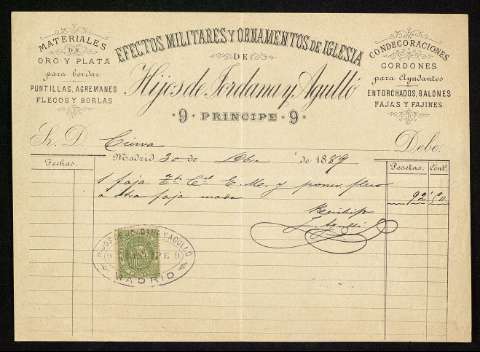 MATERIALES
DE
ORO Y PLATA
para bordar
PUNTILLAS, AGREMANES
FLECOS Y BORLAS
EFECTOS MILITARES Y ORNAMENTOS DE IGLESIA
DE
Hijos de Jordana y Agulló
9 PRINCIPE 9
CONDECORACIONES
CORDONES
para Ayudantes
ENTORCHADOS, GALONES
FAJAS Y FAJINES
Sr. D. Debe:
Madrid 30 de de 1889
Fechas. Pesetas. Cent.
1 faja y poner fleco
a otra faja 92
Recibí
MADRID